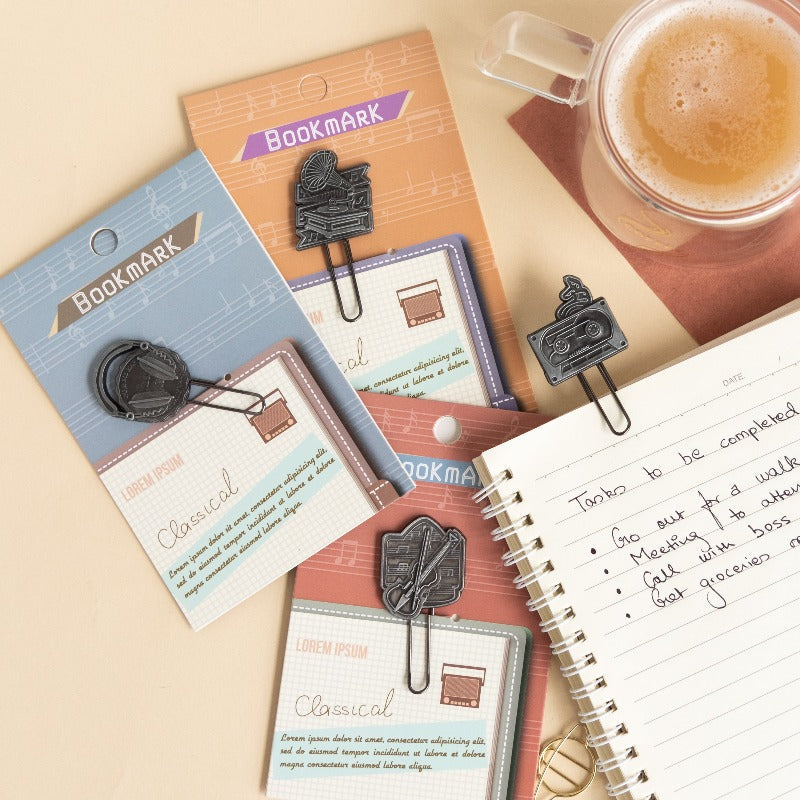 BOOKMARK
BOOKMARK
LOREM IPSUM
Classical
Lorem ipsum dolor sit amet, consectetur adipisicing elit,
sed do eiusmod tempor incididunt ut labore et dolore
magna aliqua.
consectetur adipisicing elit,
incididunt ut labore et dolore
LOREM IPSUM
Classical
Lorem ipsum dolor sit amet, consectetur adipisicing elit,
sed do eiusmod tempor incididunt ut labore et dolore
magna aliqua.
DATE
Tasks to be completed
• Go out for a walk
• Meeting to
• Call with boss
• Get groceries